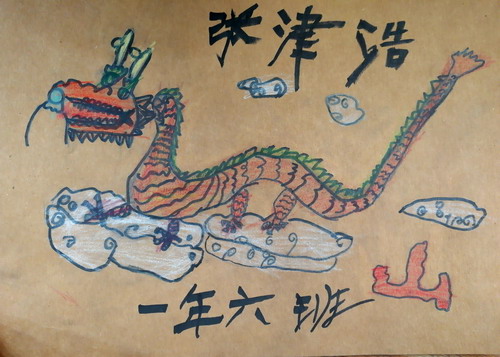 张津浩
一年六班
山